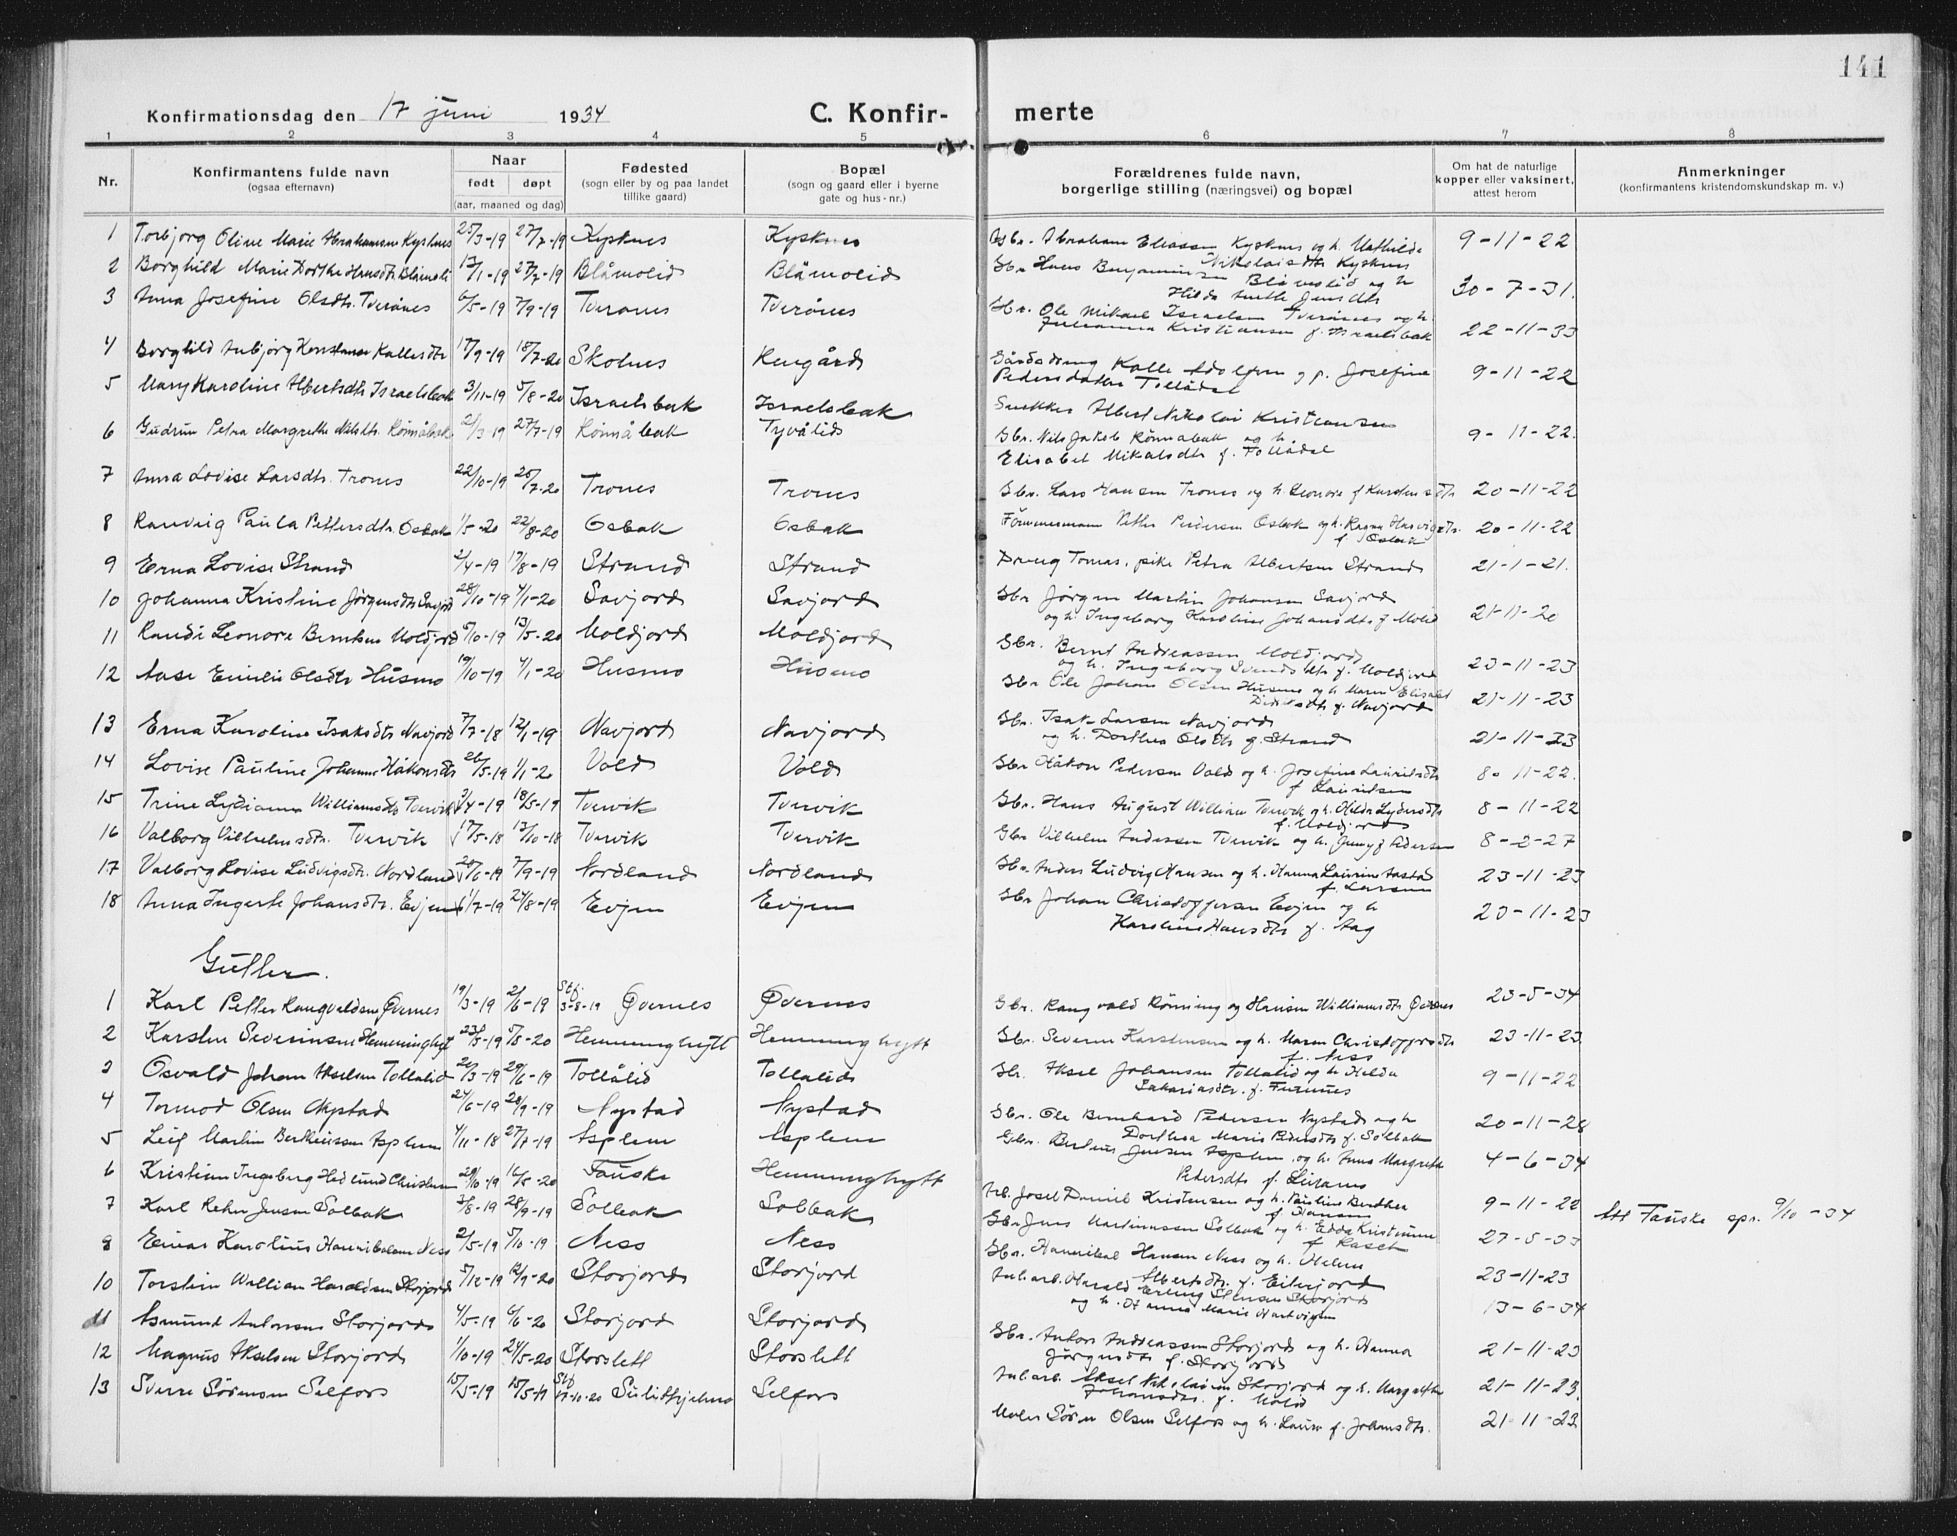 141
Konfirmationsdag den 17 juni 1934
C. Konfir-merte
1 2 3 4 5 6 7 8
Nr.
Konfirmantens fulde navn
(ogsaa efternavn)
Naar
født døpt
(aar, maaned og dag)
Fødested
(sogn eller by og paa landet
tillike gaard)
Bopæl
(sogn og gaard eller i byerne
gate og hus-nr.)
Forældrenes fulde navn,
borgerlige stilling (næringsvei) og bopæl
Om hat de naturlige
kopper eller vaksinert,
attest herom
Anmerkninger
(konfirmantens kristendomskundskap m. v.)
1 Torbjørg Oline Marie Abrahamsen Kysknes 25/3-19 27/7-19 Kysknes Kysknes Gbr. Abraham Eliassen Kysknes og h. Mathilde 9-11-22
Nikolaisdtr Kysknes
2 Borghild Marie Dorthe Hansdtr Blåmoli 17/1-19 27/7-19 Blåmolid Blåmolid Gbr Hans Benjaminsen Blåmolid og h 30-7-31.
Hilda Anette Jensdtr
3 Anna Josefine Olsdtr. Tverånes 6/5-19 7/9-19 Tverånes Tverånes Gbr. Ole Mikael Israelsen Tverånes og h.
Julianna Kristiansen f. Israelsbak 22-11-33
4 Borghild Anbjørg Konstanse Kallesdtr 17/9-19 18/7-20 Skolnes Rengård Gårdsdreng Kalle Adolfsen og p. Josefine 9-11-22
Pedersdatter Tollådal
5 Mary Karoline Albertsdtr Israelsbak 3/11-19 5/8-20 Israelsbak Israelsbak Snekker Albert Nikolai Kristiansen
6 Gudrun Petra Margrethe Nilsdtr. Rönnåbak 21/3-19 27/7-19 Rönnåbak Tyvålid Gbr. Nils Jakob Rönnabak og h. 9-11-22.
Elisabet Mikalsdtr f. Tollådal
7 Anna Lovise Larsdtr. Trones 22/10-19 25/7-20 Trones Trones Gbr. Lars Hansen Trones og h. Leonore f. Karstensdtr 20-11-22
8 Ranveig Paula Pettersdtr. Osbak 1/5-20 22/8-20 Osbak Osbak Petter Pedersen Osbak og h. Ragna 20-11-22
f. Osbak
9 Erna Lovise Strand 2/4-19 17/8-19 Strand Strand Dreng Tomas, pike Petra Albertsen Strand 21-1-21.
10 Johanna Kristine Jørgensdtr Savjord 28/10-19 4/1-20 Savjord Savjord Gbr Jørgen Martin Johansen Savjord
og h. Ingeborg Karoline Johansdtr f Molid 21-11-20
11 Randi Leonore Berntsen Moldjord 5/10-19 13/5-20 Moldjord Moldjord Gbr. Bernt Andreassen Moldjord
og h. Ingeborg Svendsdtr. f. Moldjord 23-11-23
12 Aase Emilie Olsdtr Husmo 19/10-19 4/1-20 Husmo Husmo Gbr Ole Johan Olsen Husmo og h. Maren Elisabet
f. Navjord 21-11-23
13 Erna Karoline Isaksdtr Navjord 7/7-18 12/1-19 Navjord Navjord Gbr. Isak Larsen Navjord
og h. Dorthea Olsdtr f. Strand 21-11-23
14 Lovise Pauline Johanne Håkonsdtr 26/5-19 1/1-20 Vold Vold Gbr Håkon Pedersen Vold og h. Josefine Lauritsdtr 8-11-22.
f Lauritsen
15 Trine Lydianna Williamsdtr Tvervik 3/4-19 18/5-19 Tvervik Tvervik Gbr. Hans August William Tvervik og h. Helda Lydersdtr 8-11-22
f. Moldjord
16 Valborg Vilhelmsdtr. Tvervik 17/5-18 13/10-18 Tvervik Tvervik Gbr Vilhelm Andersen Tvervik og h. Jenny f Pedersen 8-2-27
17 Valborg Lovise Ludvigsdtr. Nordland 20/6-19 7/9-19 Nordland Nordland Gbr. Anders Ludvig Hansen og h. Hanna Laurine Aastad 23-11-23
f. Larsen
18 Anna Ingerte Johansdtr. Evjen 1/7-19 24/8-19 Evjen Evjen Gbr Johan Christoffersen Evjen og h 23-11-23
Karoline Hansdtr f. Aag
Gutter.
1 Karl Petter Rangvaldsen Øvernes 19/3-19 2/6-19 Stf. 3-8-19 Øvernes Øvernes Gbr. Rangvald Rönning og Hansine Williamsdtr Øvernes 23-5-34
2 Karsten Severinsen Hemminghytt 23/5-19 5/8-20 Hemminghytt Hemminghytt Gbr. Severin Karstensen og h. Maren Christoffersdtr 23-11-23
f. Ness
3 Osvald Johan Akselsen Tollålid 20/3-19 29/6-19 Tollålid Tollålid Gbr. Aksel Johansen Tollålid og h. Helda 9-11-22
Sakariasdtr. f. Furunes
4 Tormod Olsen Nystad 24/6-19 28/9-19 Nystad Nystad Gbr. Ole Bernhard Pedersen Nystad og h 20-11-28
Dorthea Marie Pedersdtr f. Solbak
5 Leif Martin Bertheussen Asplem 4/11-18 27/7-19 Asplem Asplem Gbr. Berteus Jensen Asplem og h. Anna Margrethe 4-6-34
Pedersdtr f. Leiranes
6 Kristian Ingeberg Hedlund Christensen 29/10-19 16/5-20 Fauske Hemminghytt Arb. Josef Daniel Kristensen og h. Pauline Berthea 9-11-22 Att Fauske spr. 9/10-34
f. Hansen
7 Karl Rehn Jensen Solbak 3/8-19 28/9-19 Solbak Solbak Gbr Jens Martinussen Solbak og h. Edda Kristensen 27-5-33
f. Røset
8 Einar Karolius Hannibalsen Ness 2/5-19 5/10-19 Ness Ness Gbr. Hannibal Hansen Ness og h. Helene 23-11-23
Albertsdtr. f. Eiterjord
10 Torstein William Haroldsen Storjord 5/12-19 12/9-20 Storjord Storjord Anl.arb. Harald Erling Storjord
og h. Hanna Marie Hartvigsen 13-6-34
11 Asmund Antonsen Storjord 4/5-19 6/6-20 Storjord Storjord Gbr. Anton Andreassen Storjord og h. Hanna 21-11-23
Jørgensdtr f. Storjord
12 Magnus Akselsen Storjord 1/10-19 24/5-20 Storslett Storslett Anl.arb. Aksel Nikolaisen Storjord og h. Margrethe 21-11-23.
Johansdtr. f. Molid
13 Sverre Sørensen Selfors 15/3-19 15/5-19 Stf 17-10-20 Sulithjelma Selfors Maler Sører Olsen Selfors og h. Laura f. Johansdtr. 21-11-23